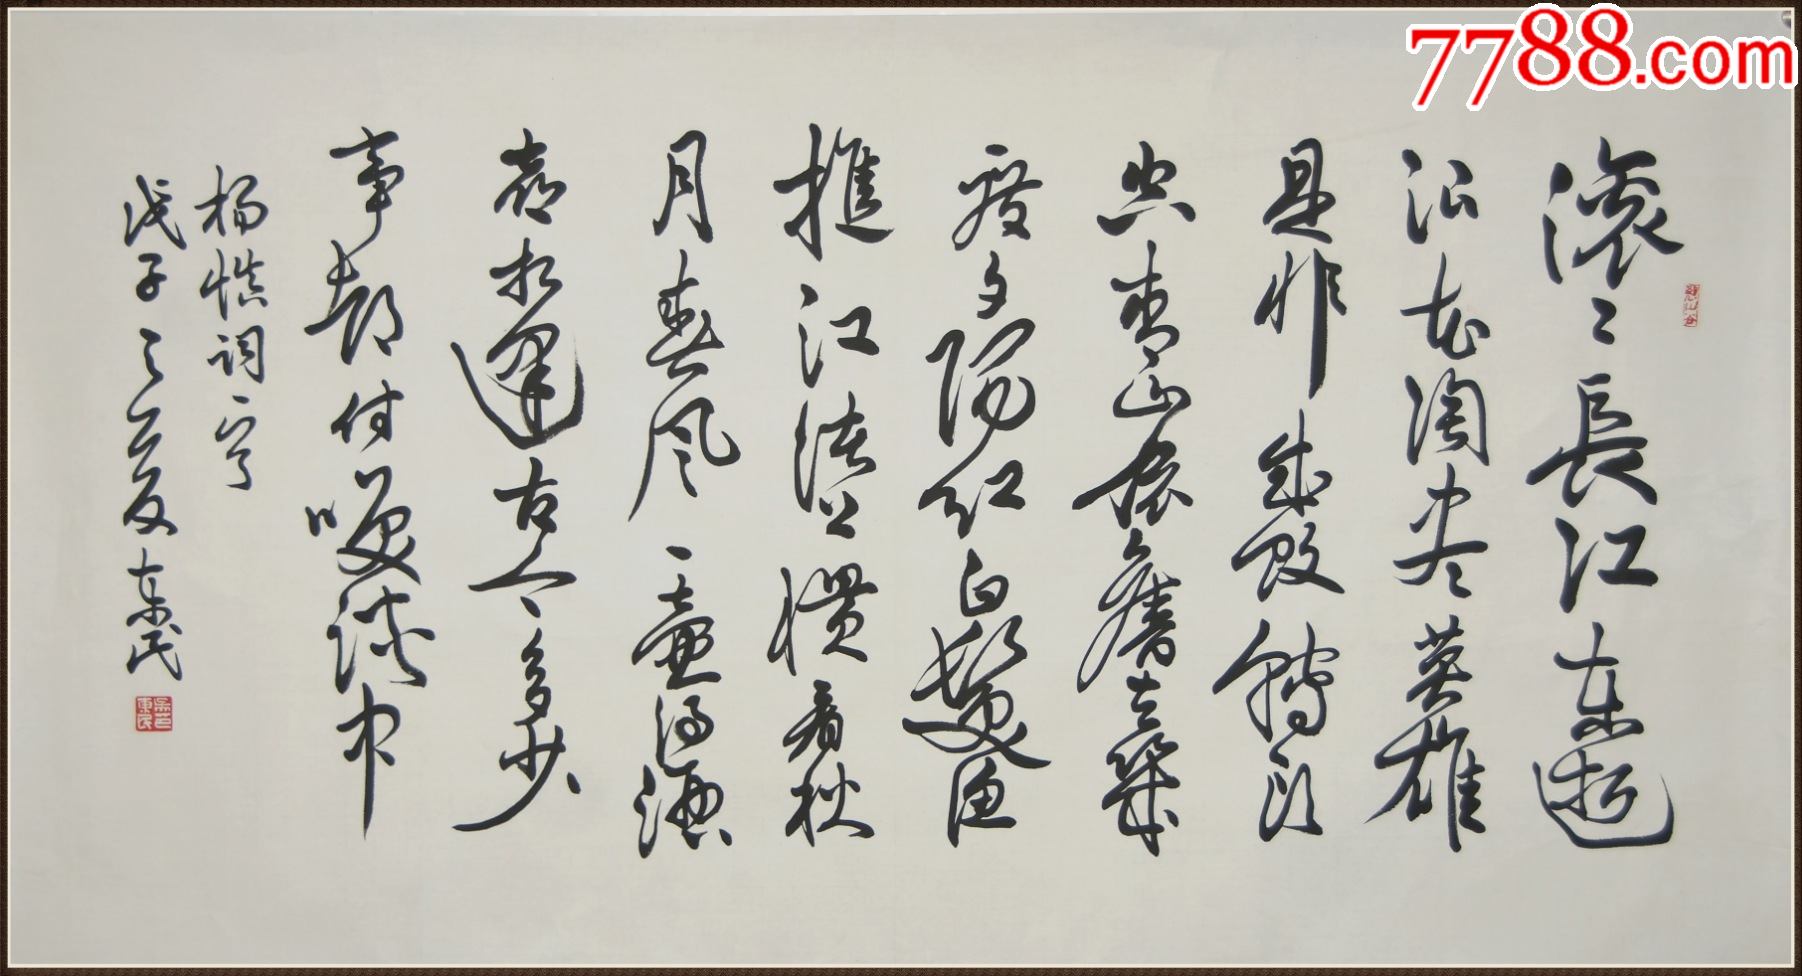 滚〻長江东逝
浪花淘尽英雄
是非成敗轉头
空青山依舊在幾
度夕陽红白髮渔
樵江渚上慣看秋
月春风一壶浊酒
喜相逢古今多少
事都付咲谈中
杨慎词一首
戊子之夏东民
7788.com